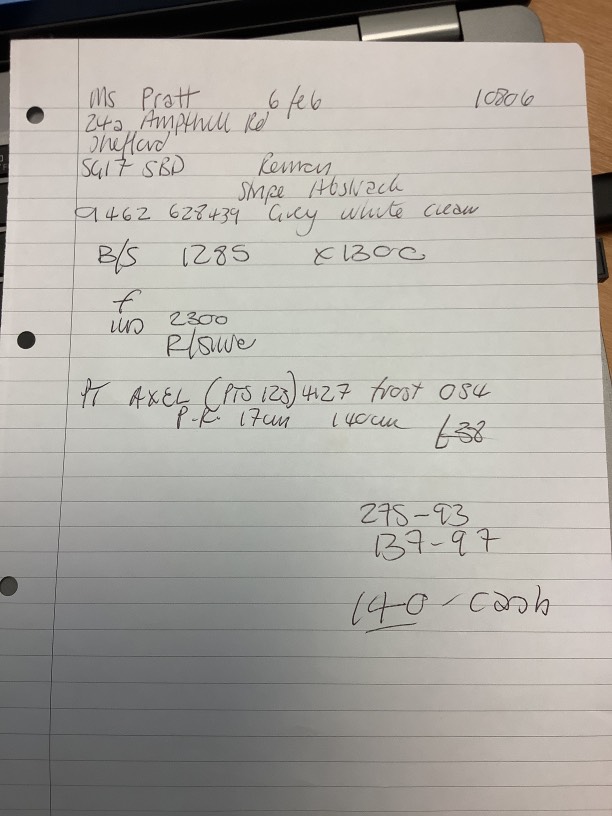 Ms Pratt 6 feb 10806
242 Ampthill Rd
Shefford
SG17 5BD Roman
Stripe Abstrach
9462 628439 Grey white cream
B/S 1285 x 1300
f
2300
R/S
PT AXEL (PTS 123) 4127 frost 054
P.R. 17cm 140cm £38
275-93
137-97
140 - cash